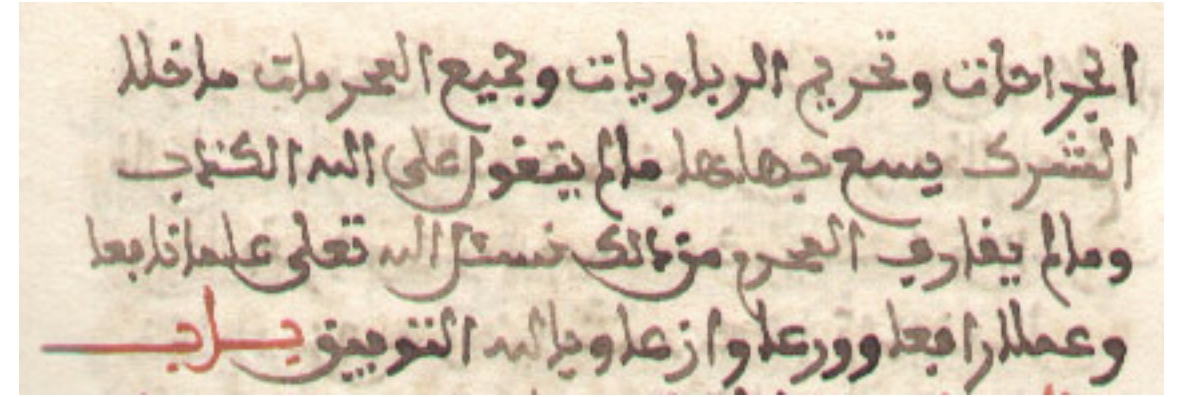 الجراحات وتحريم الربلويات وجميع المحرمات ما خلا
الشرك يسع جهلها ما لم يتقول على الله الكذب
وما لم يقارف المحرم من ذلك نسئل الله تعلى علما نافعا
وعملا رافعا وورعا وازعا وبالله التوفيق باب